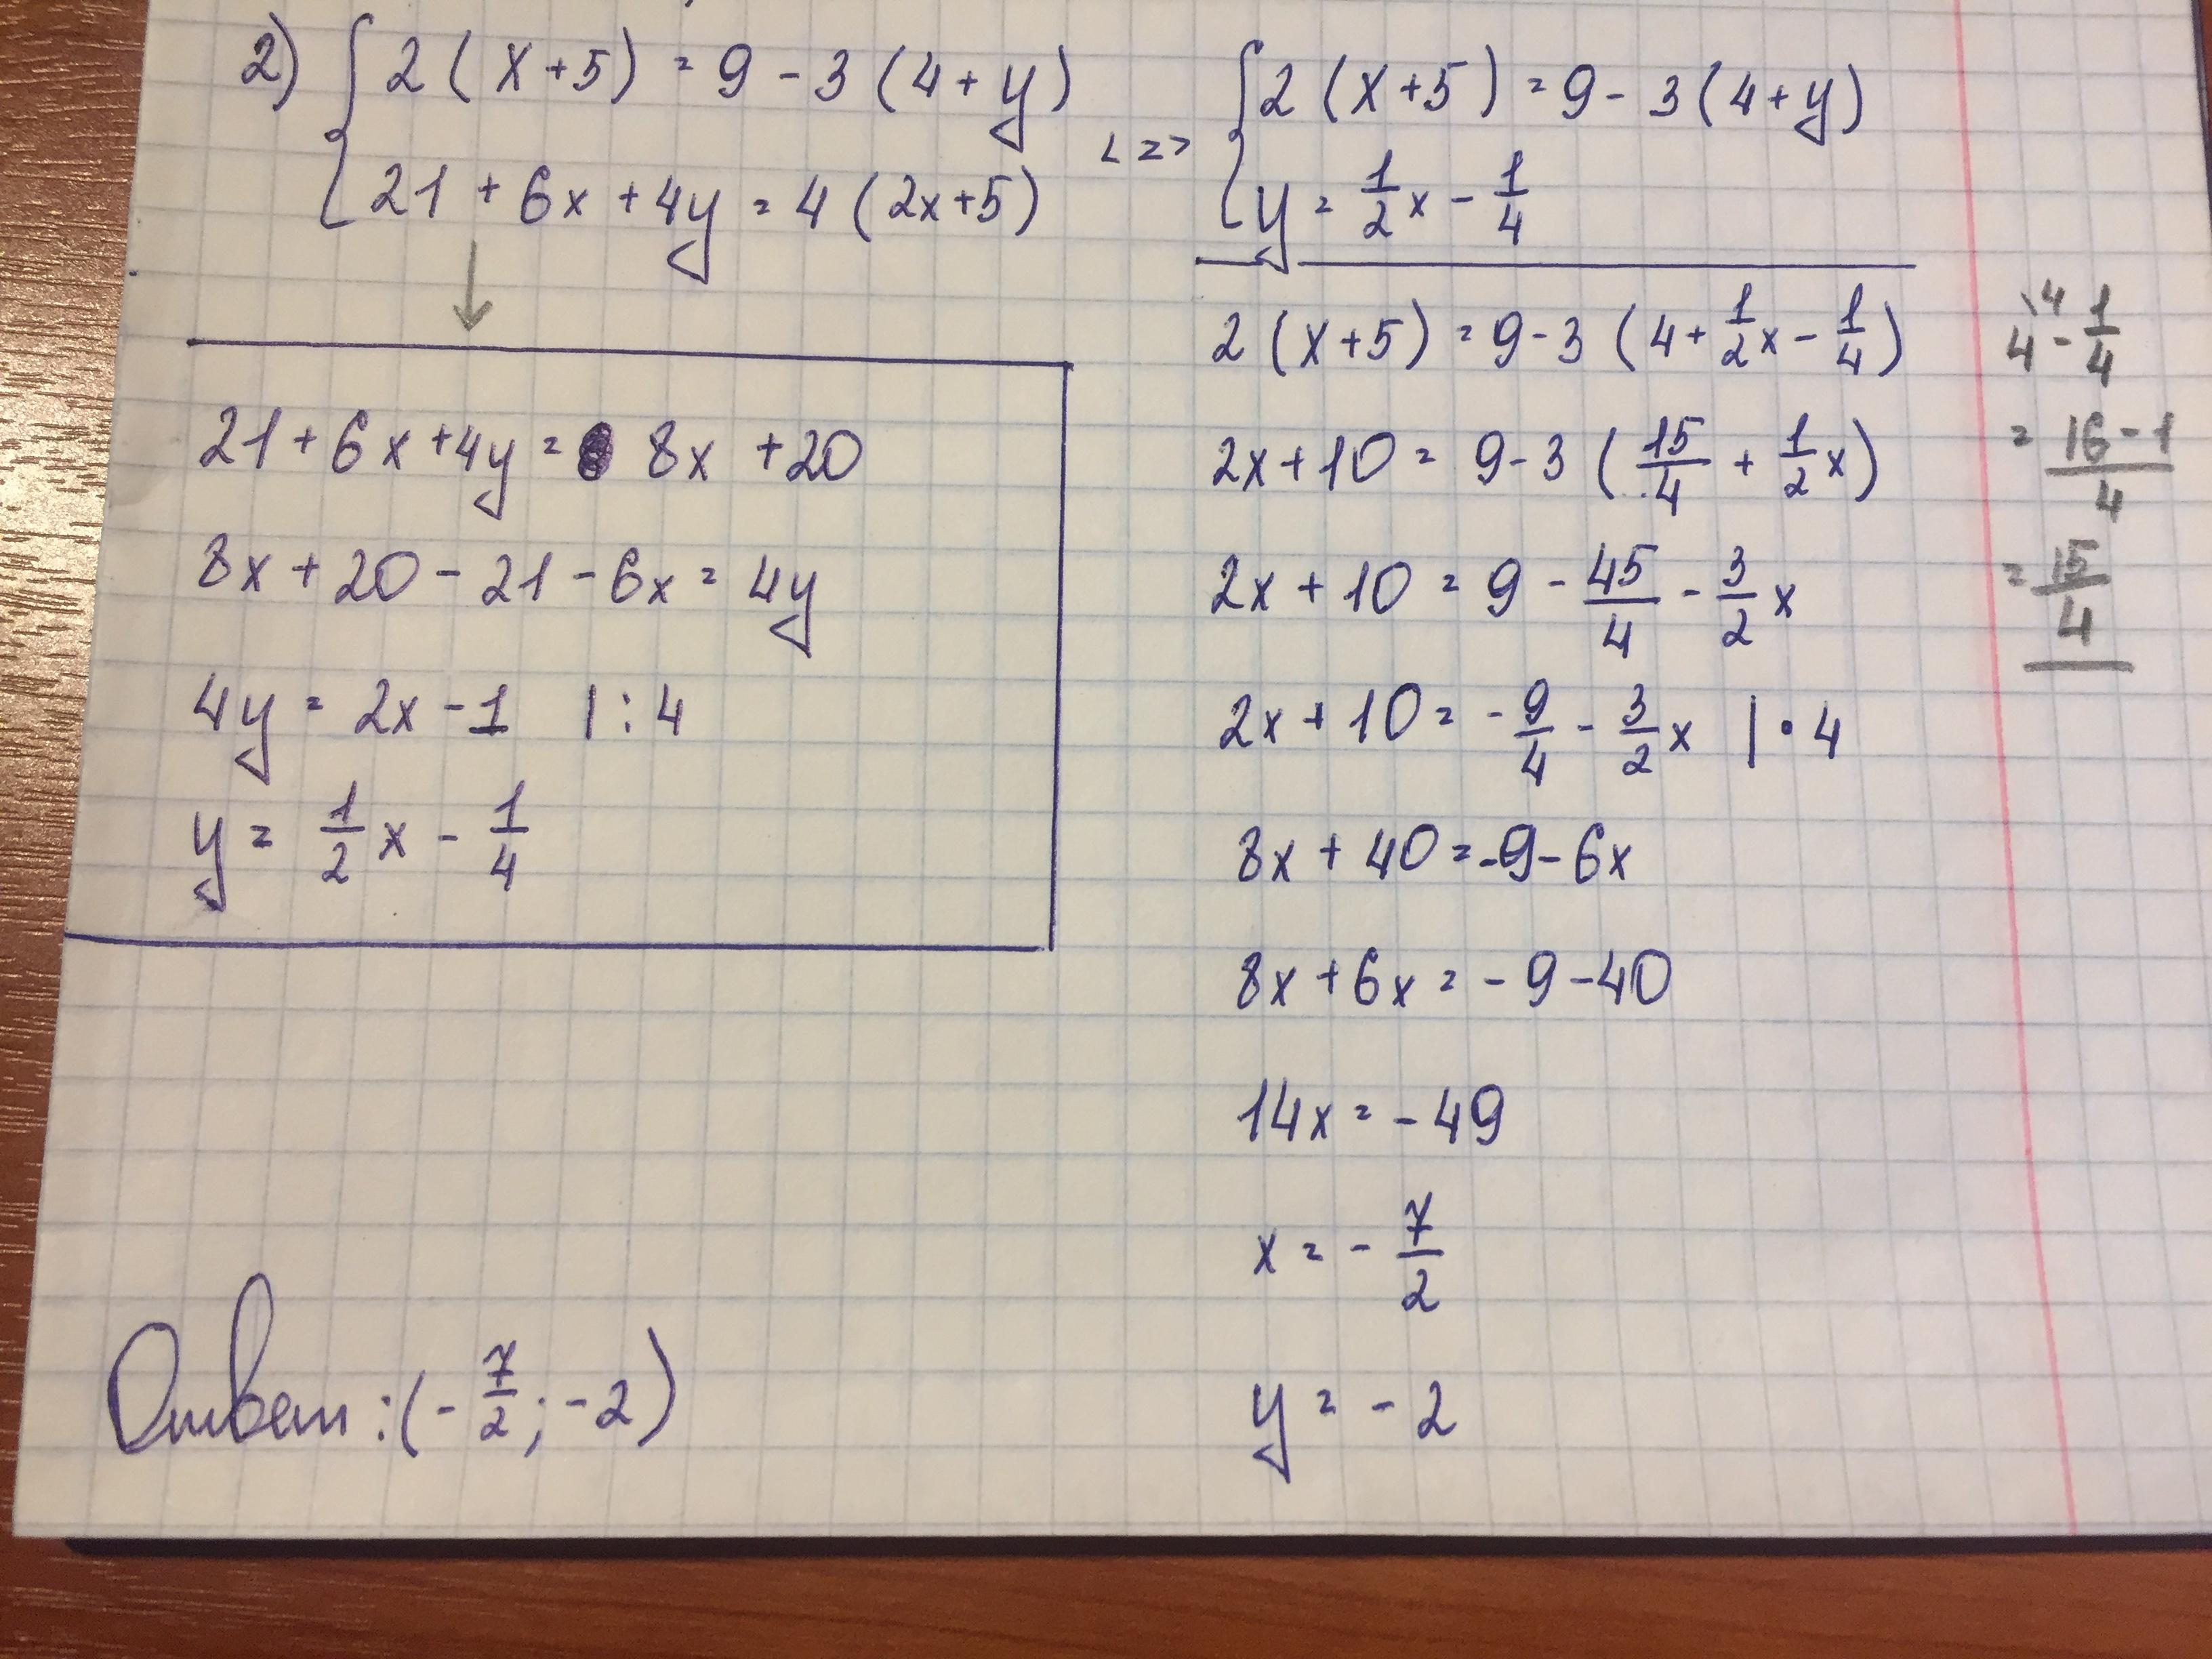 2) { 2 (x+5) = 9 - 3 (4+y)
21 + 6x + 4y = 4 (2x+5)
<=>
{ 2 (x+5) = 9 - 3 (4+y)
y = 1/2 x - 1/4
↓
21 + 6x + 4y = 8x + 20
8x + 20 - 21 - 6x = 4y
4y = 2x - 1 | : 4
y = 1/2 x - 1/4
2 (x+5) = 9 - 3 (4 + 1/2 x - 1/4)
2x + 10 = 9 - 3 (15/4 + 1/2 x)
2x + 10 = 9 - 45/4 - 3/2 x
2x + 10 = - 9/4 - 3/2 x | · 4
8x + 40 = -9 - 6x
8x + 6x = - 9 - 40
14x = - 49
x = - 7/2
y = - 2
4\4 - 1/4
= 16-1/4
= 15/4
Ответ: (- 7/2 ; -2)